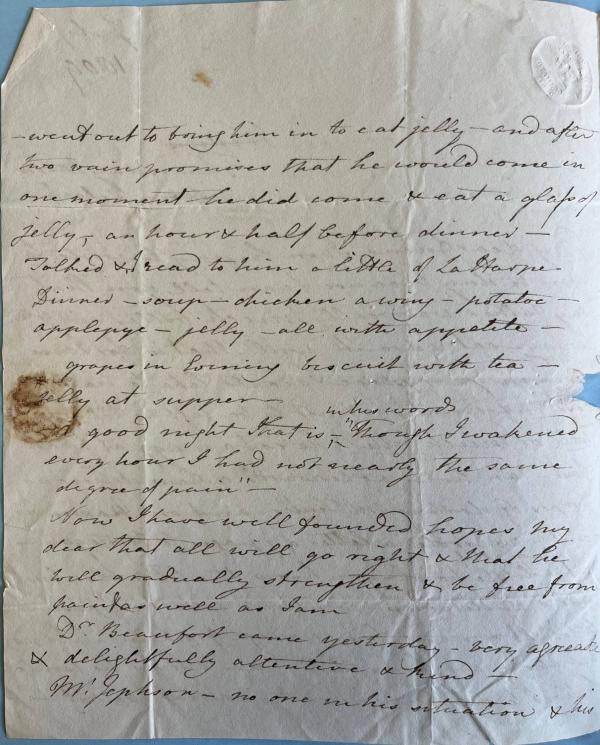 - went out to bring him in to eat jelly - and after
two vain promises that he would come in
one moment he did come & eat a glass of
jelly, an hour & half before dinner -
Talked & I read to him a little of La Harpe
Dinner - soup - chicken a wing - potatoe -
applepye - jelly - all with appetite -
grapes in Evening biscuit with tea -
Jelly at supper -
in his words
good night that is - "Though I wakened
every hour I had not nearly the same
degree of pain" -
Now I have well founded hopes my
dear that all will go right & that he
will gradually strengthen & be free from
pain as well as I am
Dr. Beaufort came yesterday - very agreeable
& delightfully attentive & kind -
Mr. Jephson - no one in his situation & his